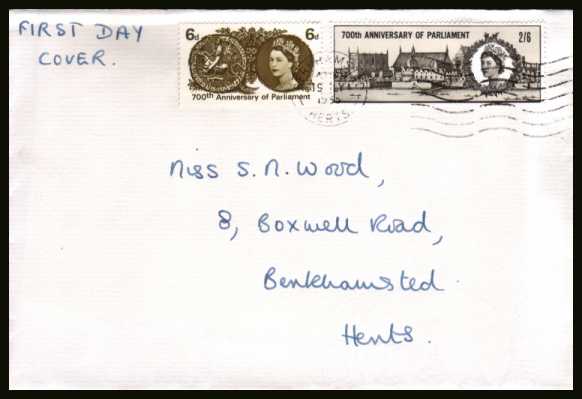 FIRST DAY
COVER.
6d 6d
700th Anniversary of Parliament
700TH ANNIVERSARY OF PARLIAMENT 2/6
HERTS
Miss S. N. Wood,
8, Boxwell Road,
Berkhamsted.
Herts.